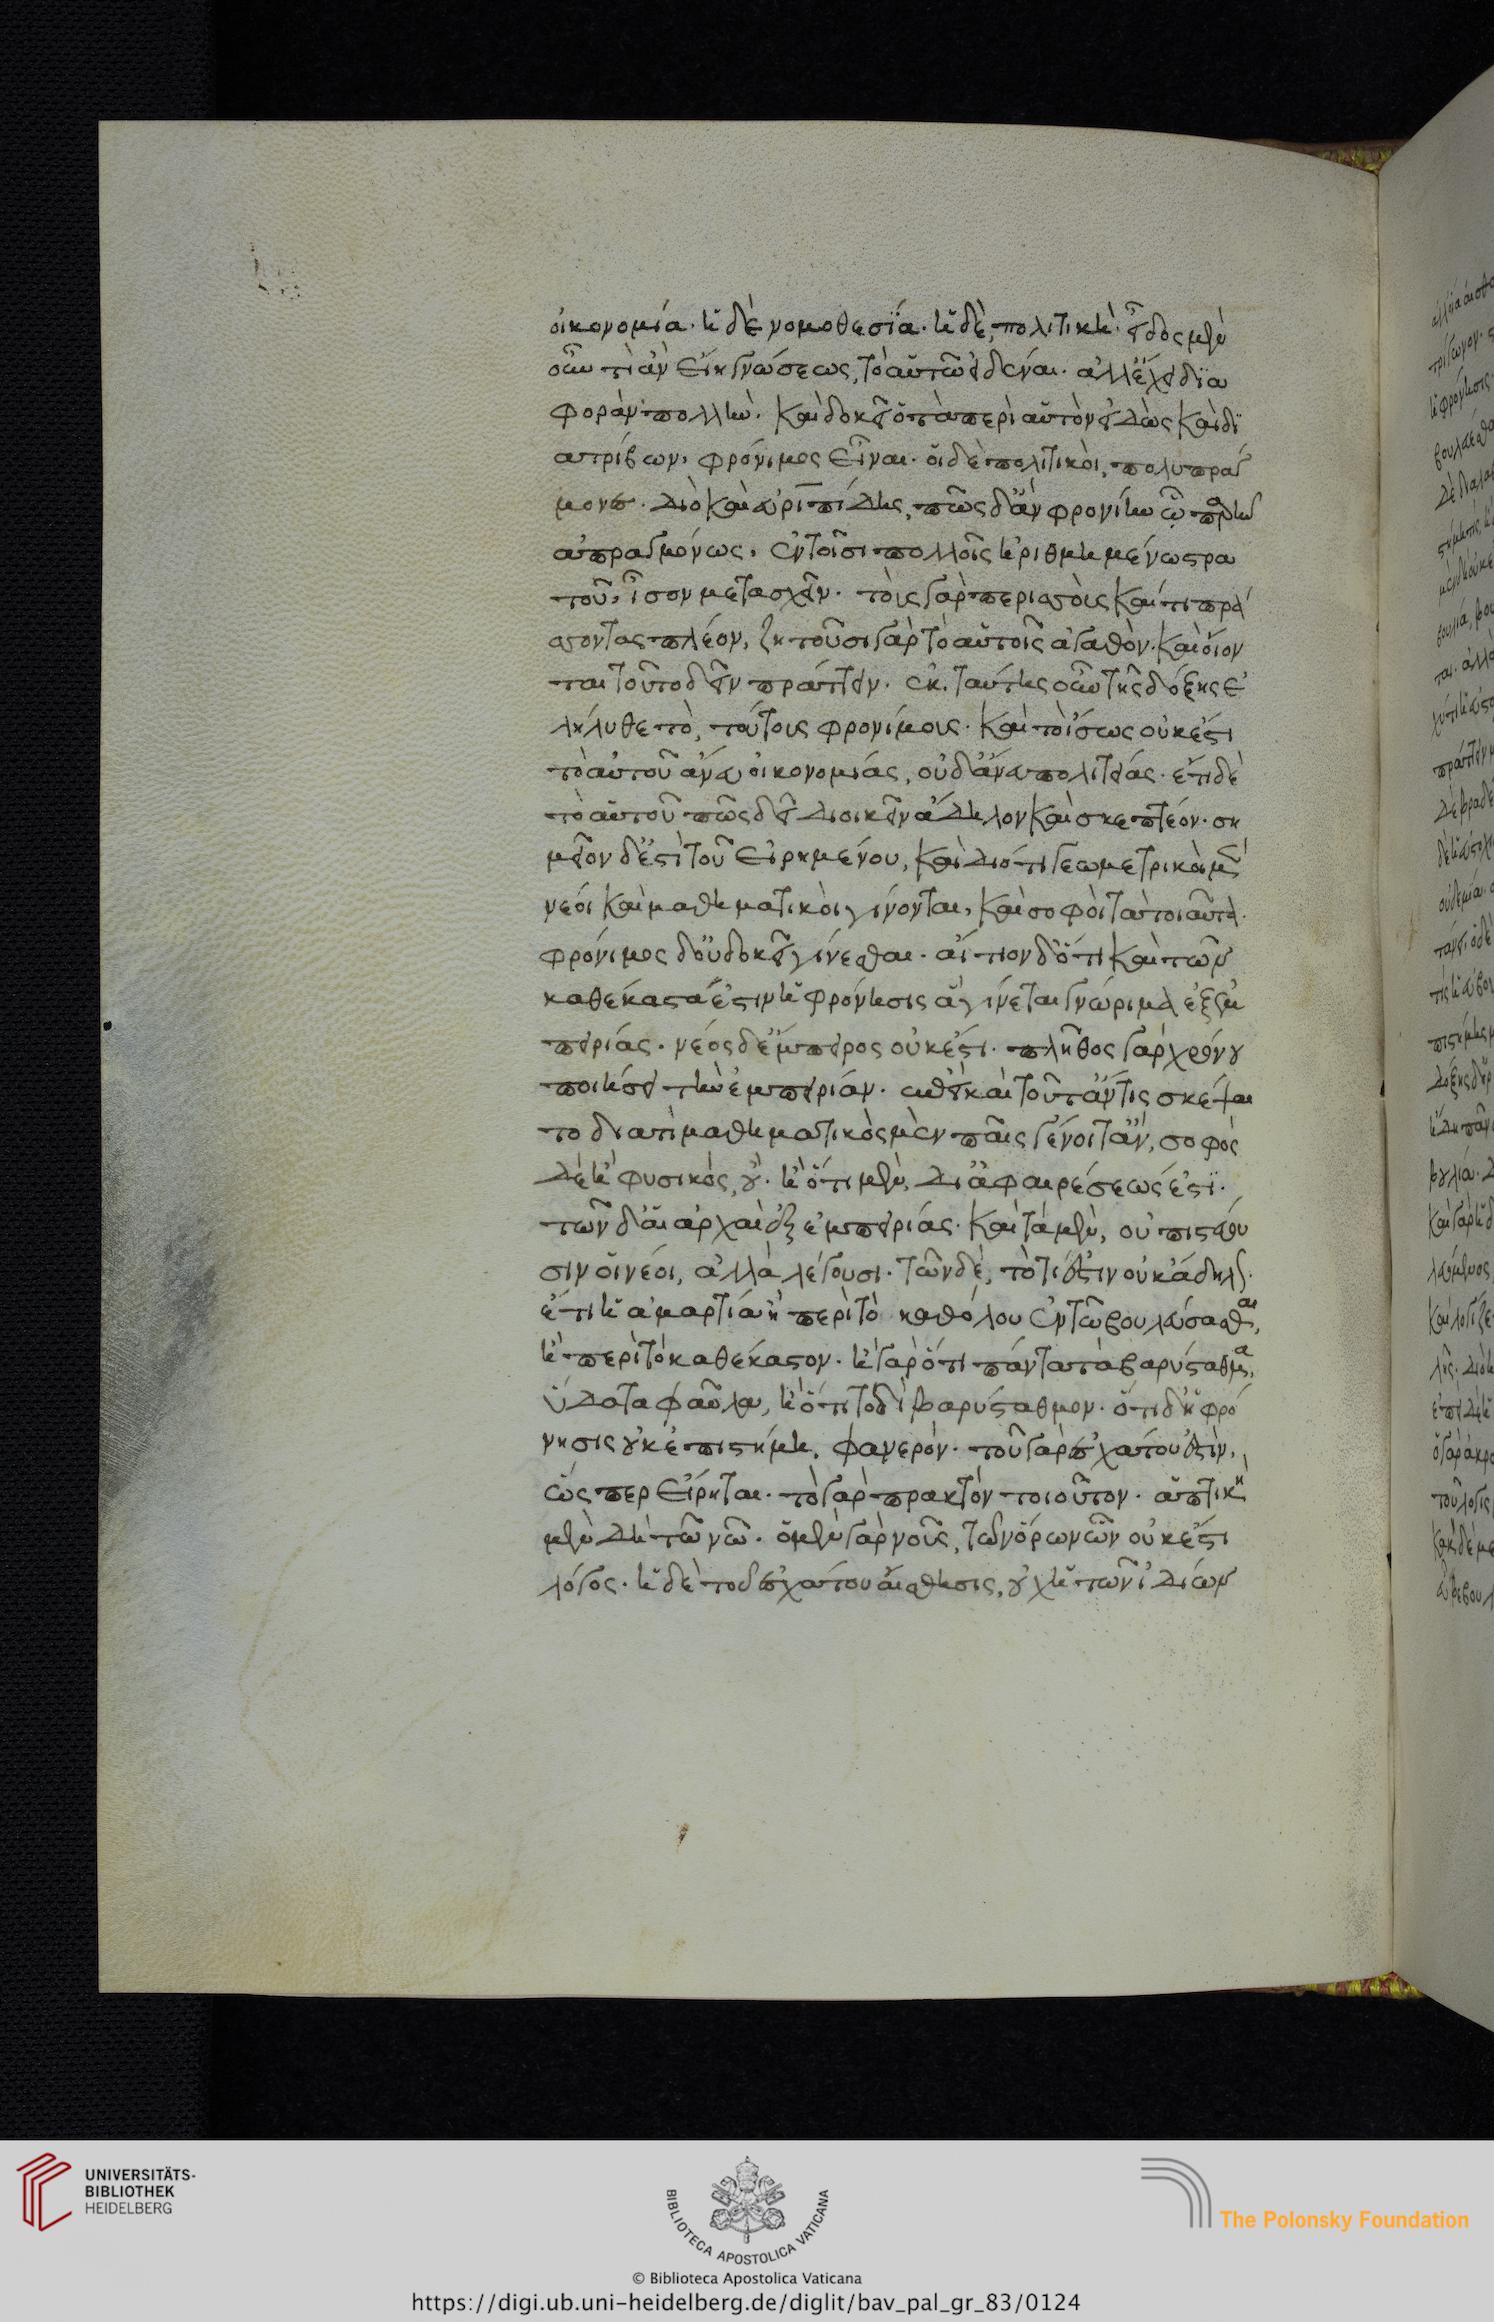 οἰκονομία· ἡ δὲ νομοθεσία· ἡ δὲ, πολιτική· εἶδος μὲν
οὖν τι ἂν εἴη γνώσεως, τὸ αὑτῶ εἰδέναι· ἀλλ' ἔχει δια
φορὰν πολλήν· καὶ δοκεῖ ὁ τὰ περὶ αὑτὸν εἰδὼς καὶ δι
ατρίβων, φρόνιμος εἶναι· οἱ δὲ πολιτικοὶ, πολυπράγ
μονες· διὸ καὶ εὐριπίδης, πῶς δ' ἂν φρονοίην ᾧ παρῆν
ἀπραγμόνως, ἐν τοῖσι πολλοῖς ἠριθμημένω στρα
τοῦ, ἴσον μετασχεῖν· τοὺς γὰρ περισσοὺς καί τι πρά
σσοντας πλέον, ζητοῦσι γὰρ τὸ αὑτοῖς ἀγαθὸν· καὶ οἴον
ται τοῦτο δεῖν πράττειν· ἐκ ταύτης οὖν τῆς δόξης ἐ
λήλυθε τὸ, τούτους φρονίμους· καὶ τοι ἴσως οὐκ ἔστι
τὸ αὑτοῦ ἄνευ οἰκονομίας, οὐδ' ἄνευ πολιτείας· ἔτι δὲ
τὸ αὑτοῦ πῶς δεῖ διοικεῖν ἄδηλον καὶ σκεπτέον· ση
μεῖον δ' ἐστὶ τοῦ εἰρημένου, καὶ διότι γεωμετρικοὶ μὲν
νέοι καὶ μαθηματικοὶ γίνονται, καὶ σοφοὶ τὰ τοιαῦτα·
φρόνιμος δ' οὐ δοκεῖ γίνεσθαι· αἴτιον δ' ὅτι καὶ τῶν
καθέκαστά ἐστιν ἡ φρόνησις ἃ γίνεται γνώριμα ἐξ ἐμ
πειρίας· νέος δ' ἔμπειρος οὐκ ἔστι· πλῆθος γὰρ χρόνου
ποιήσει τὴν ἐμπειρίαν· ἐπεὶ καὶ τοῦτ' ἄν τις σκέψαι
το διατί μαθηματικὸς μὲν παῖς γένοιτ' ἄν, σοφὸς
δὲ ἢ φυσικός, οὔ· ἢ ὅτι μὲν, δι' ἀφαιρέσεως ἐστι·
τῶν δ' αἱ ἀρχαὶ ἐξ ἐμπειρίας· καὶ τὰ μὲν, οὐ πιστεύου
σιν οἱ νέοι, ἀλλὰ λέγουσι· τῶν δὲ, τὸ τί ἐστιν οὐκ ἄδηλον·
ἔτι ἡ ἁμαρτία ἢ περὶ τὸ καθόλου ἐν τῶ βουλεύσασθαι,
ἢ περὶ τὸ καθέκαστον· ἢ γὰρ ὅτι πάντα τὰ βαρύσταθμα,
ὕδατα φαῦλα, ἢ ὅτι τοδὶ βαρύσταθμον· ὅτι δ' ἡ φρό
νησις οὐκ ἐπιστήμη, φανερόν· τοῦ γὰρ ἐσχάτου ἐστὶν,
ὥσπερ εἴρηται· τὸ γὰρ πρακτόν τοιοῦτον· ἀντικεῖται
μὲν δὴ τῶ νῶ· ὁ μὲν γὰρ νοῦς, τῶν ὅρων ὧν οὐκ ἔστι
λόγος· ἡ δὲ τοῦ ἐσχάτου αἴσθησις, οὐχ ἡ τῶν ἰδίων
UNIVERSITÄTS-
BIBLIOTHEK
HEIDELBERG
BIBLIOTECA APOSTOLICA VATICANA
The Polonsky Foundation
© Biblioteca Apostolica Vaticana
https://digi.ub.uni-heidelberg.de/diglit/bav_pal_gr_83/0124